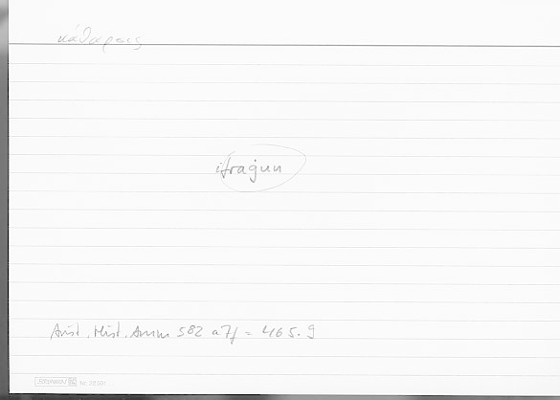 κάθαρσις
ifrağun
Arist. Hist. Anim 582 a7f = 465.9